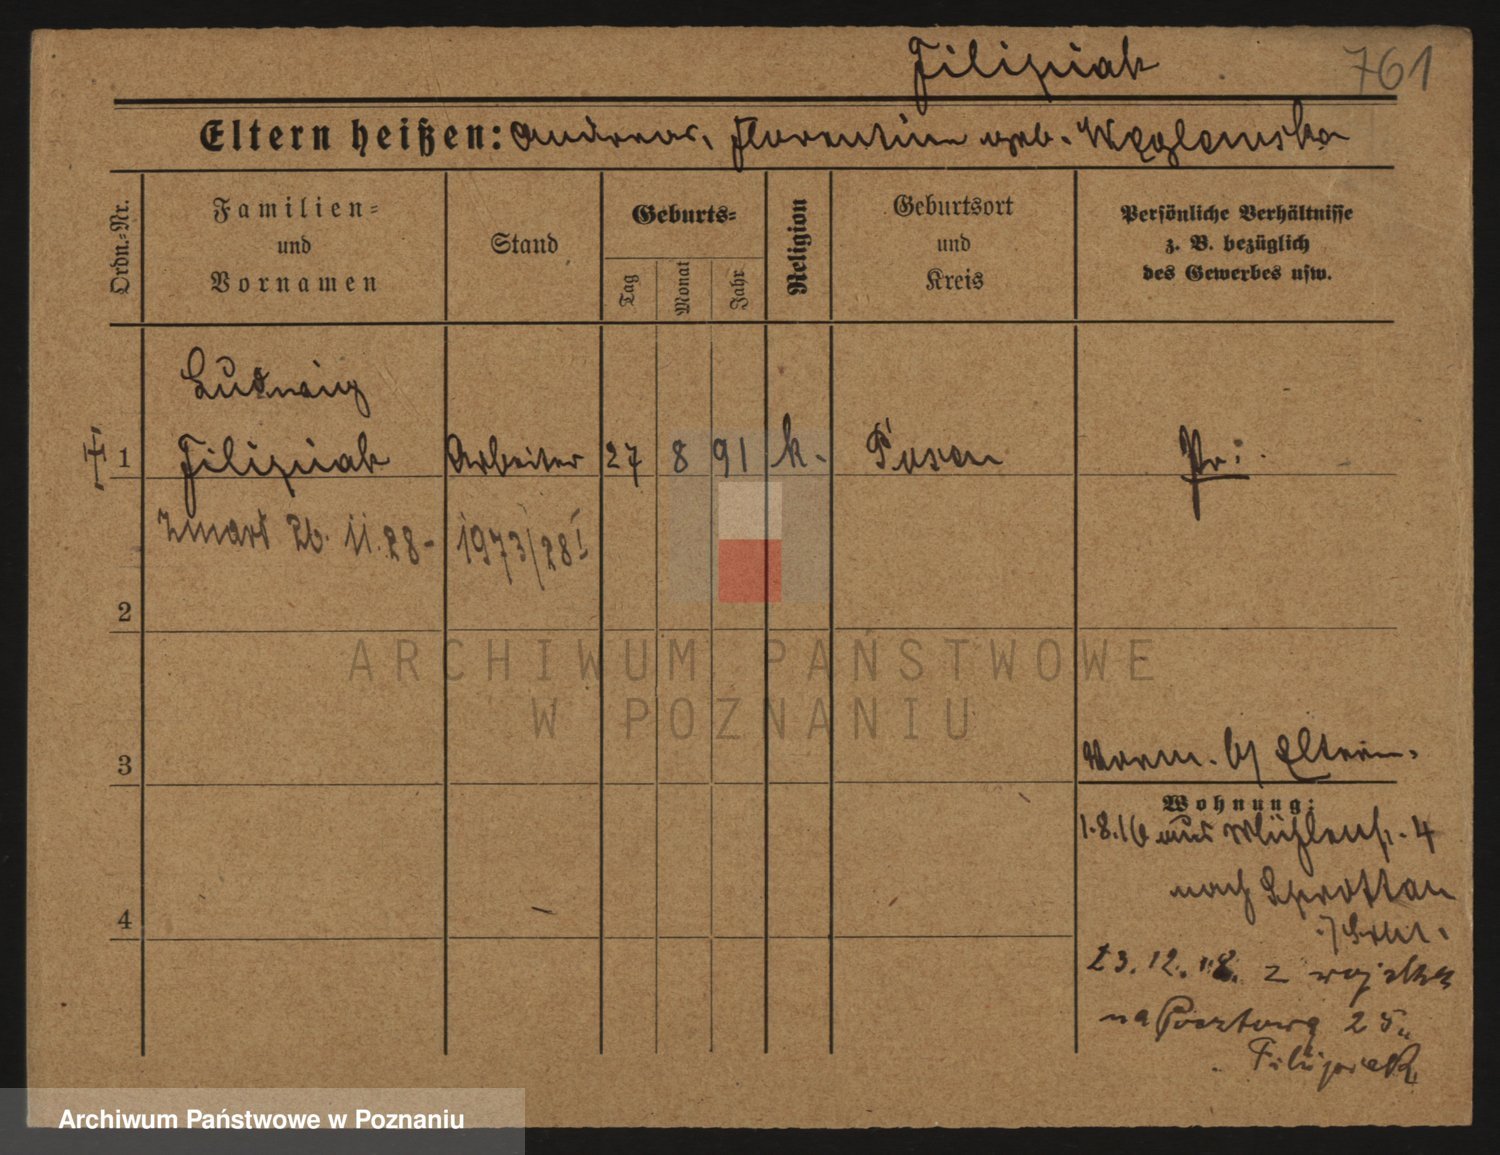 Filipiak
761
Eltern heißen: Andreas, Florentine geb. Węglewska
Ordn.=Nr.
Familien=
und
Vornamen
Stand
Geburts=
Tag
Monat
Jahr
Religion
Geburtsort
und
Kreis
Persönliche Verhältnisse
z. B. bezüglich
des Gewerbes usw.
Ludwig
1 Filipiak Arbeiter 27 8 91 k. Posen Pr:
zmarł 26. 11. 28 - 1973/28 I
2
ARCHIWUM PAŃSTWOWE
W POZNANIU
3
Vorm. b/ Eltern.
Wohnung:
1.8.16 aus Mühlenstr. 4
nach Sprottau
4
23.12.18. z wojska
na Pocztową 25
Filipiak
Archiwum Państwowe w Poznaniu